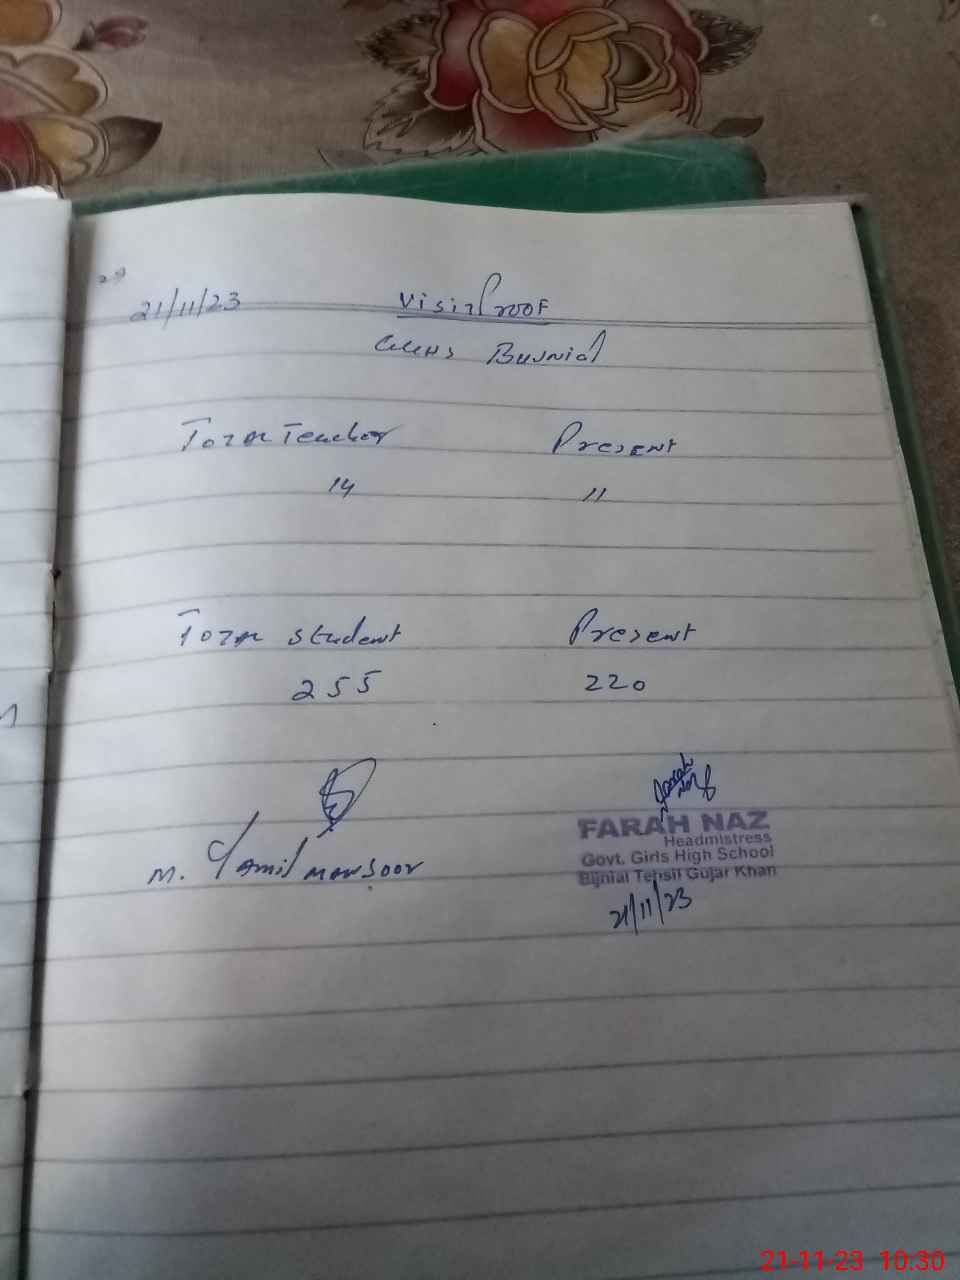 29
21/11/23 Visit Proof
GGHS Bijnial
Total Teacher Present
14 11
Total student Present
255 220
M. Jamil Mansoor
Farah
Naz
FARAH NAZ
Headmistress
Govt. Girls High School
Bijnial Tehsil Gujar Khan
21/11/23
21-11-23 10:30